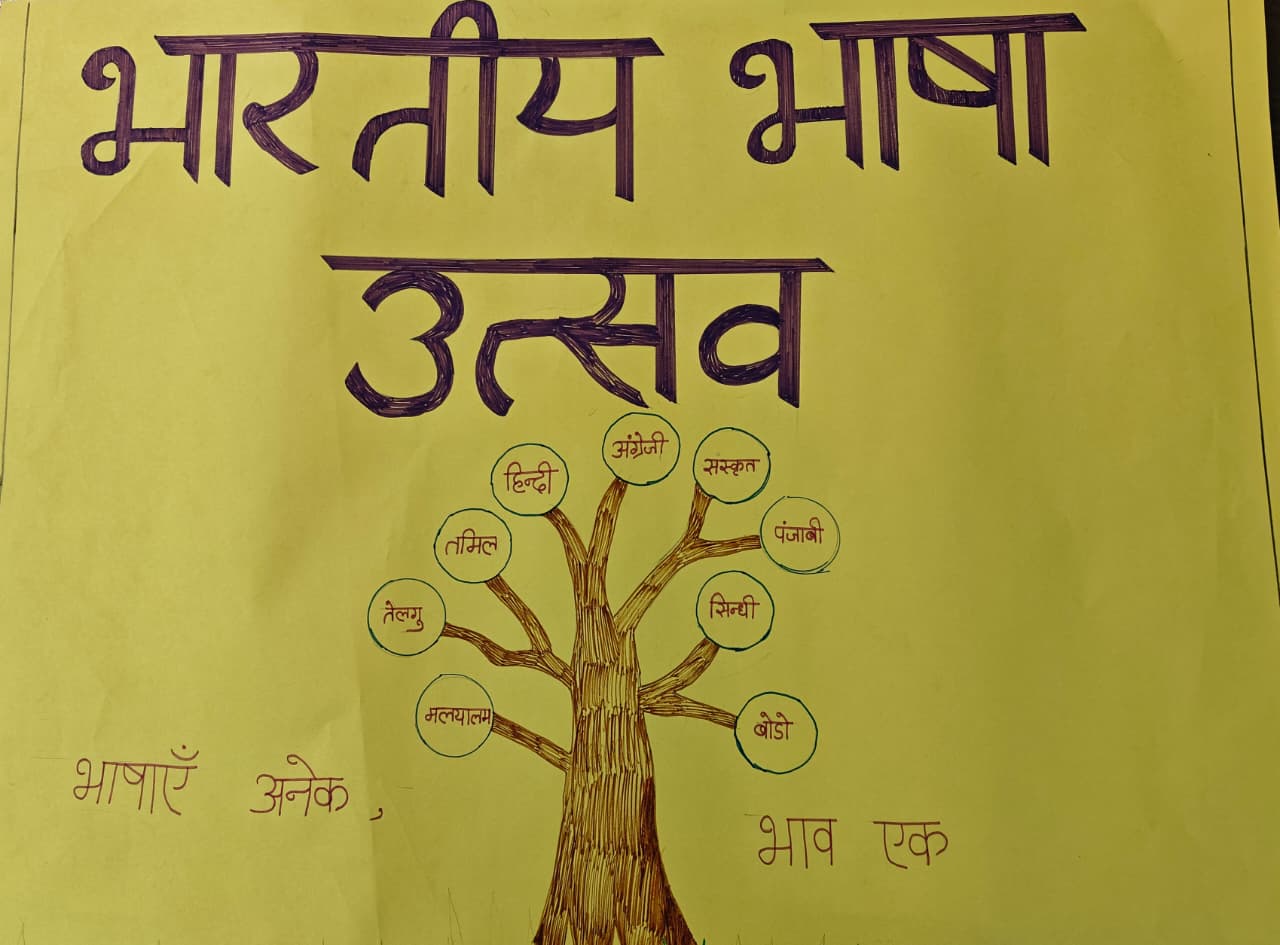 भारतीय भाषा
उत्सव
अंग्रेजी
हिन्दी
सस्कृत
तमिल
पंजाबी
तेलगु
सिन्धी
मलयालम
बोडो
भाषाएँ अनेक,
भाव एक